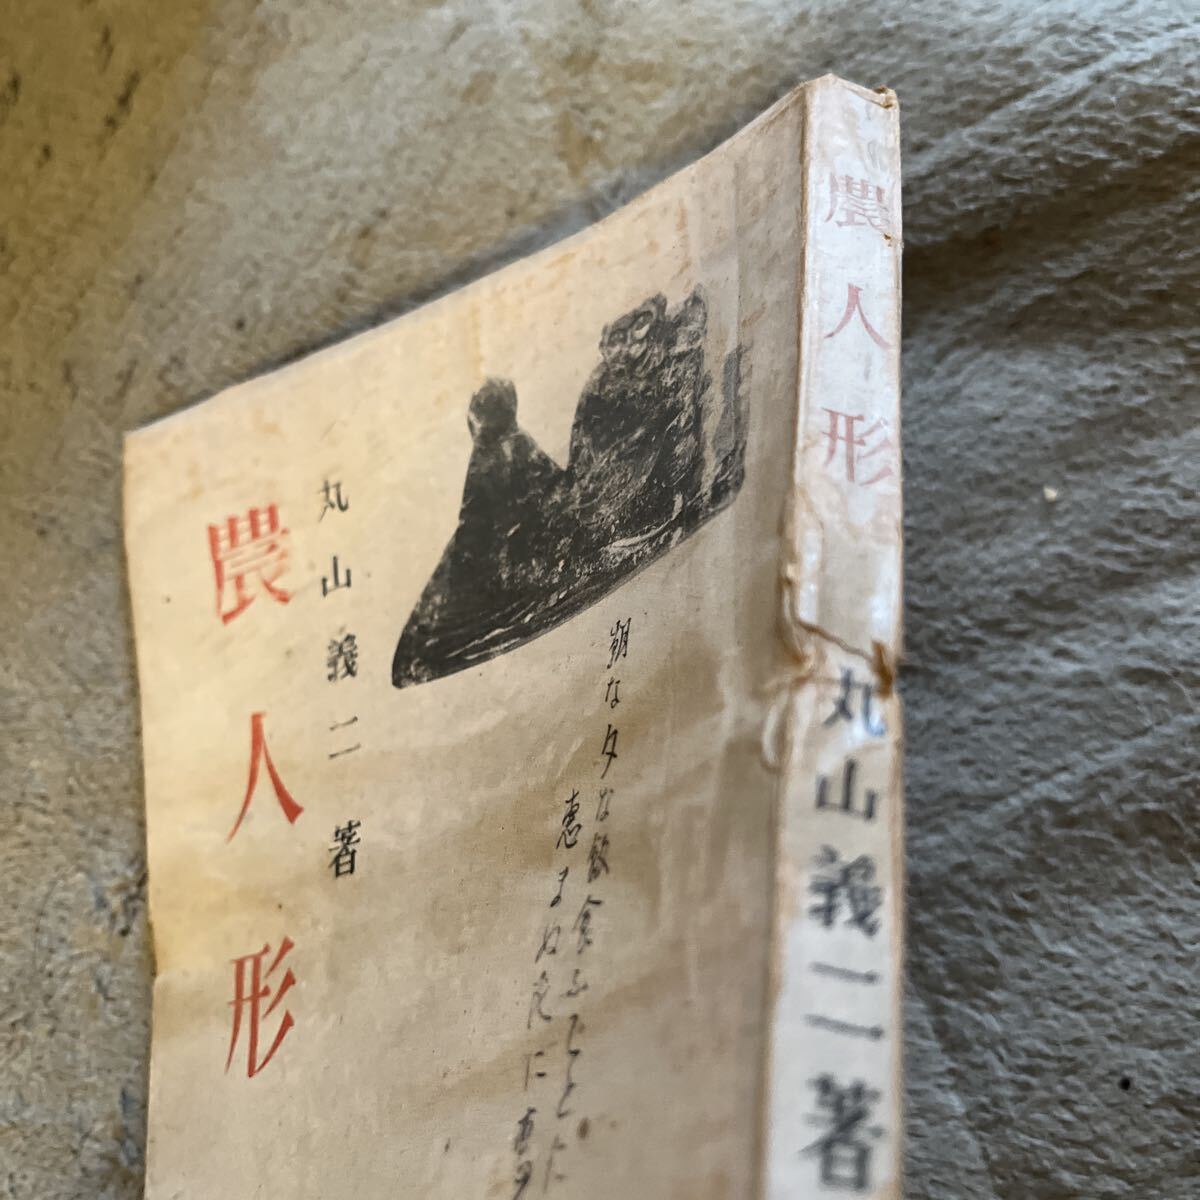 農人形
丸山義二著
朝な夕な飯食ふごとに
恵まぬ民に
農人形
丸山義二著